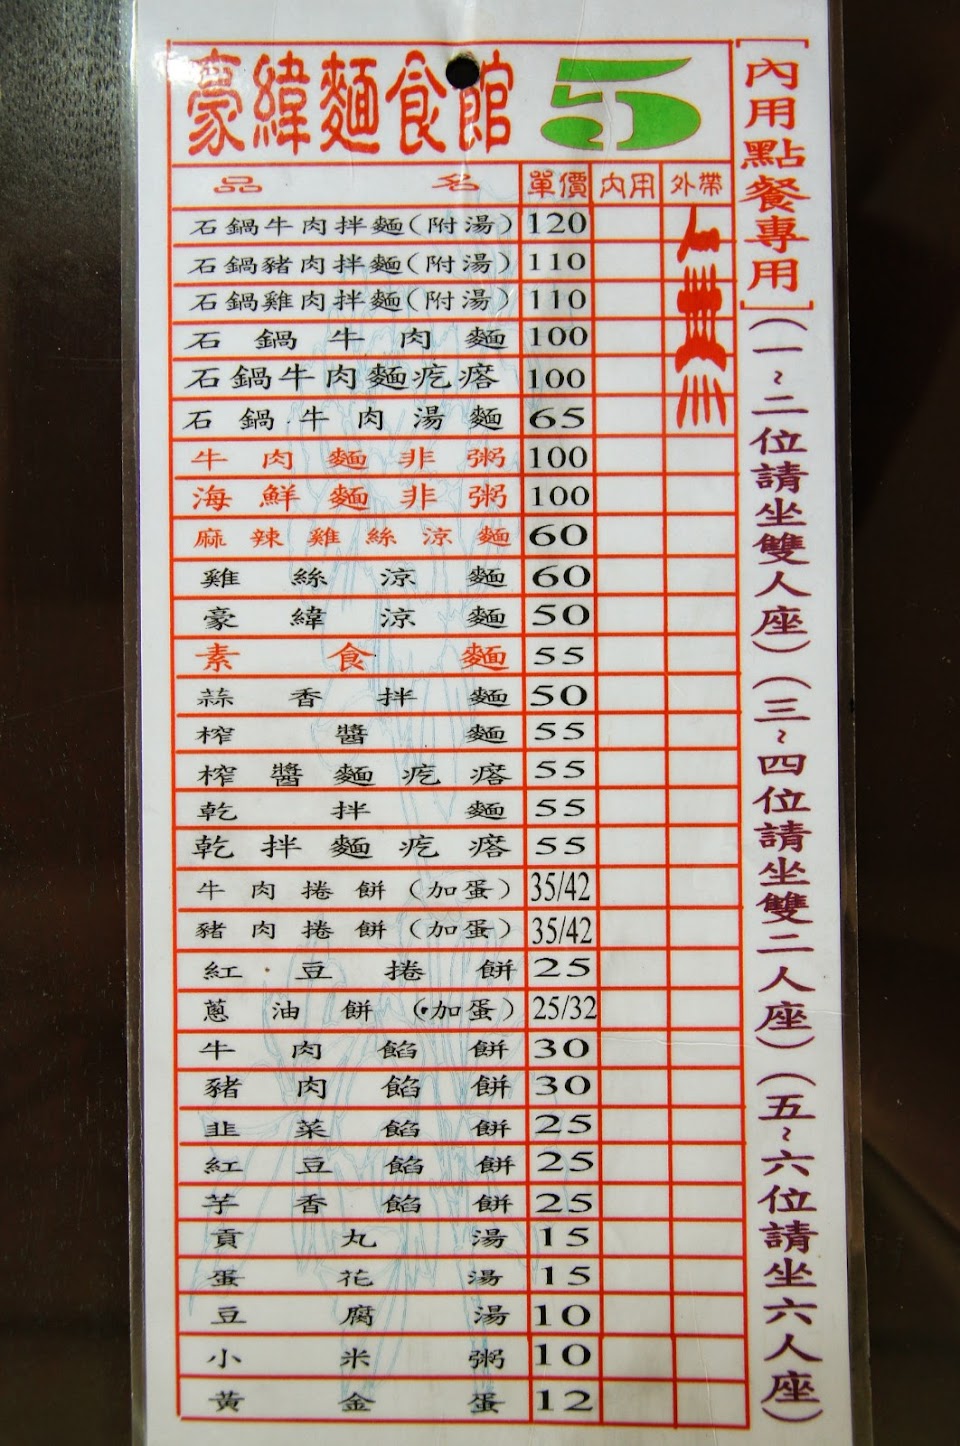 豪緯麵食館 5
品名 單價 內用 外帶
石鍋牛肉拌麵(附湯) 120
石鍋豬肉拌麵(附湯) 110
石鍋雞肉拌麵(附湯) 110
石鍋牛肉麵 100
石鍋牛肉麵疙瘩 100
石鍋牛肉湯麵 65
牛肉麵非粥 100
海鮮麵非粥 100
麻辣雞絲涼麵 60
雞絲涼麵 60
豪緯涼麵 50
素食麵 55
蒜香拌麵 50
榨醬麵 55
榨醬麵疙瘩 55
乾拌麵 55
乾拌麵疙瘩 55
牛肉捲餅(加蛋) 35/42
豬肉捲餅(加蛋) 35/42
紅豆捲餅 25
蔥油餅(加蛋) 25/32
牛肉餡餅 30
豬肉餡餅 30
韭菜餡餅 25
紅豆餡餅 25
芋香餡餅 25
貢丸湯 15
蛋花湯 15
豆腐湯 10
小米粥 10
黃金蛋 12
[內用點餐專用](一~二位請坐雙人座)(三~四位請坐雙二人座)(五~六位請坐六人座)